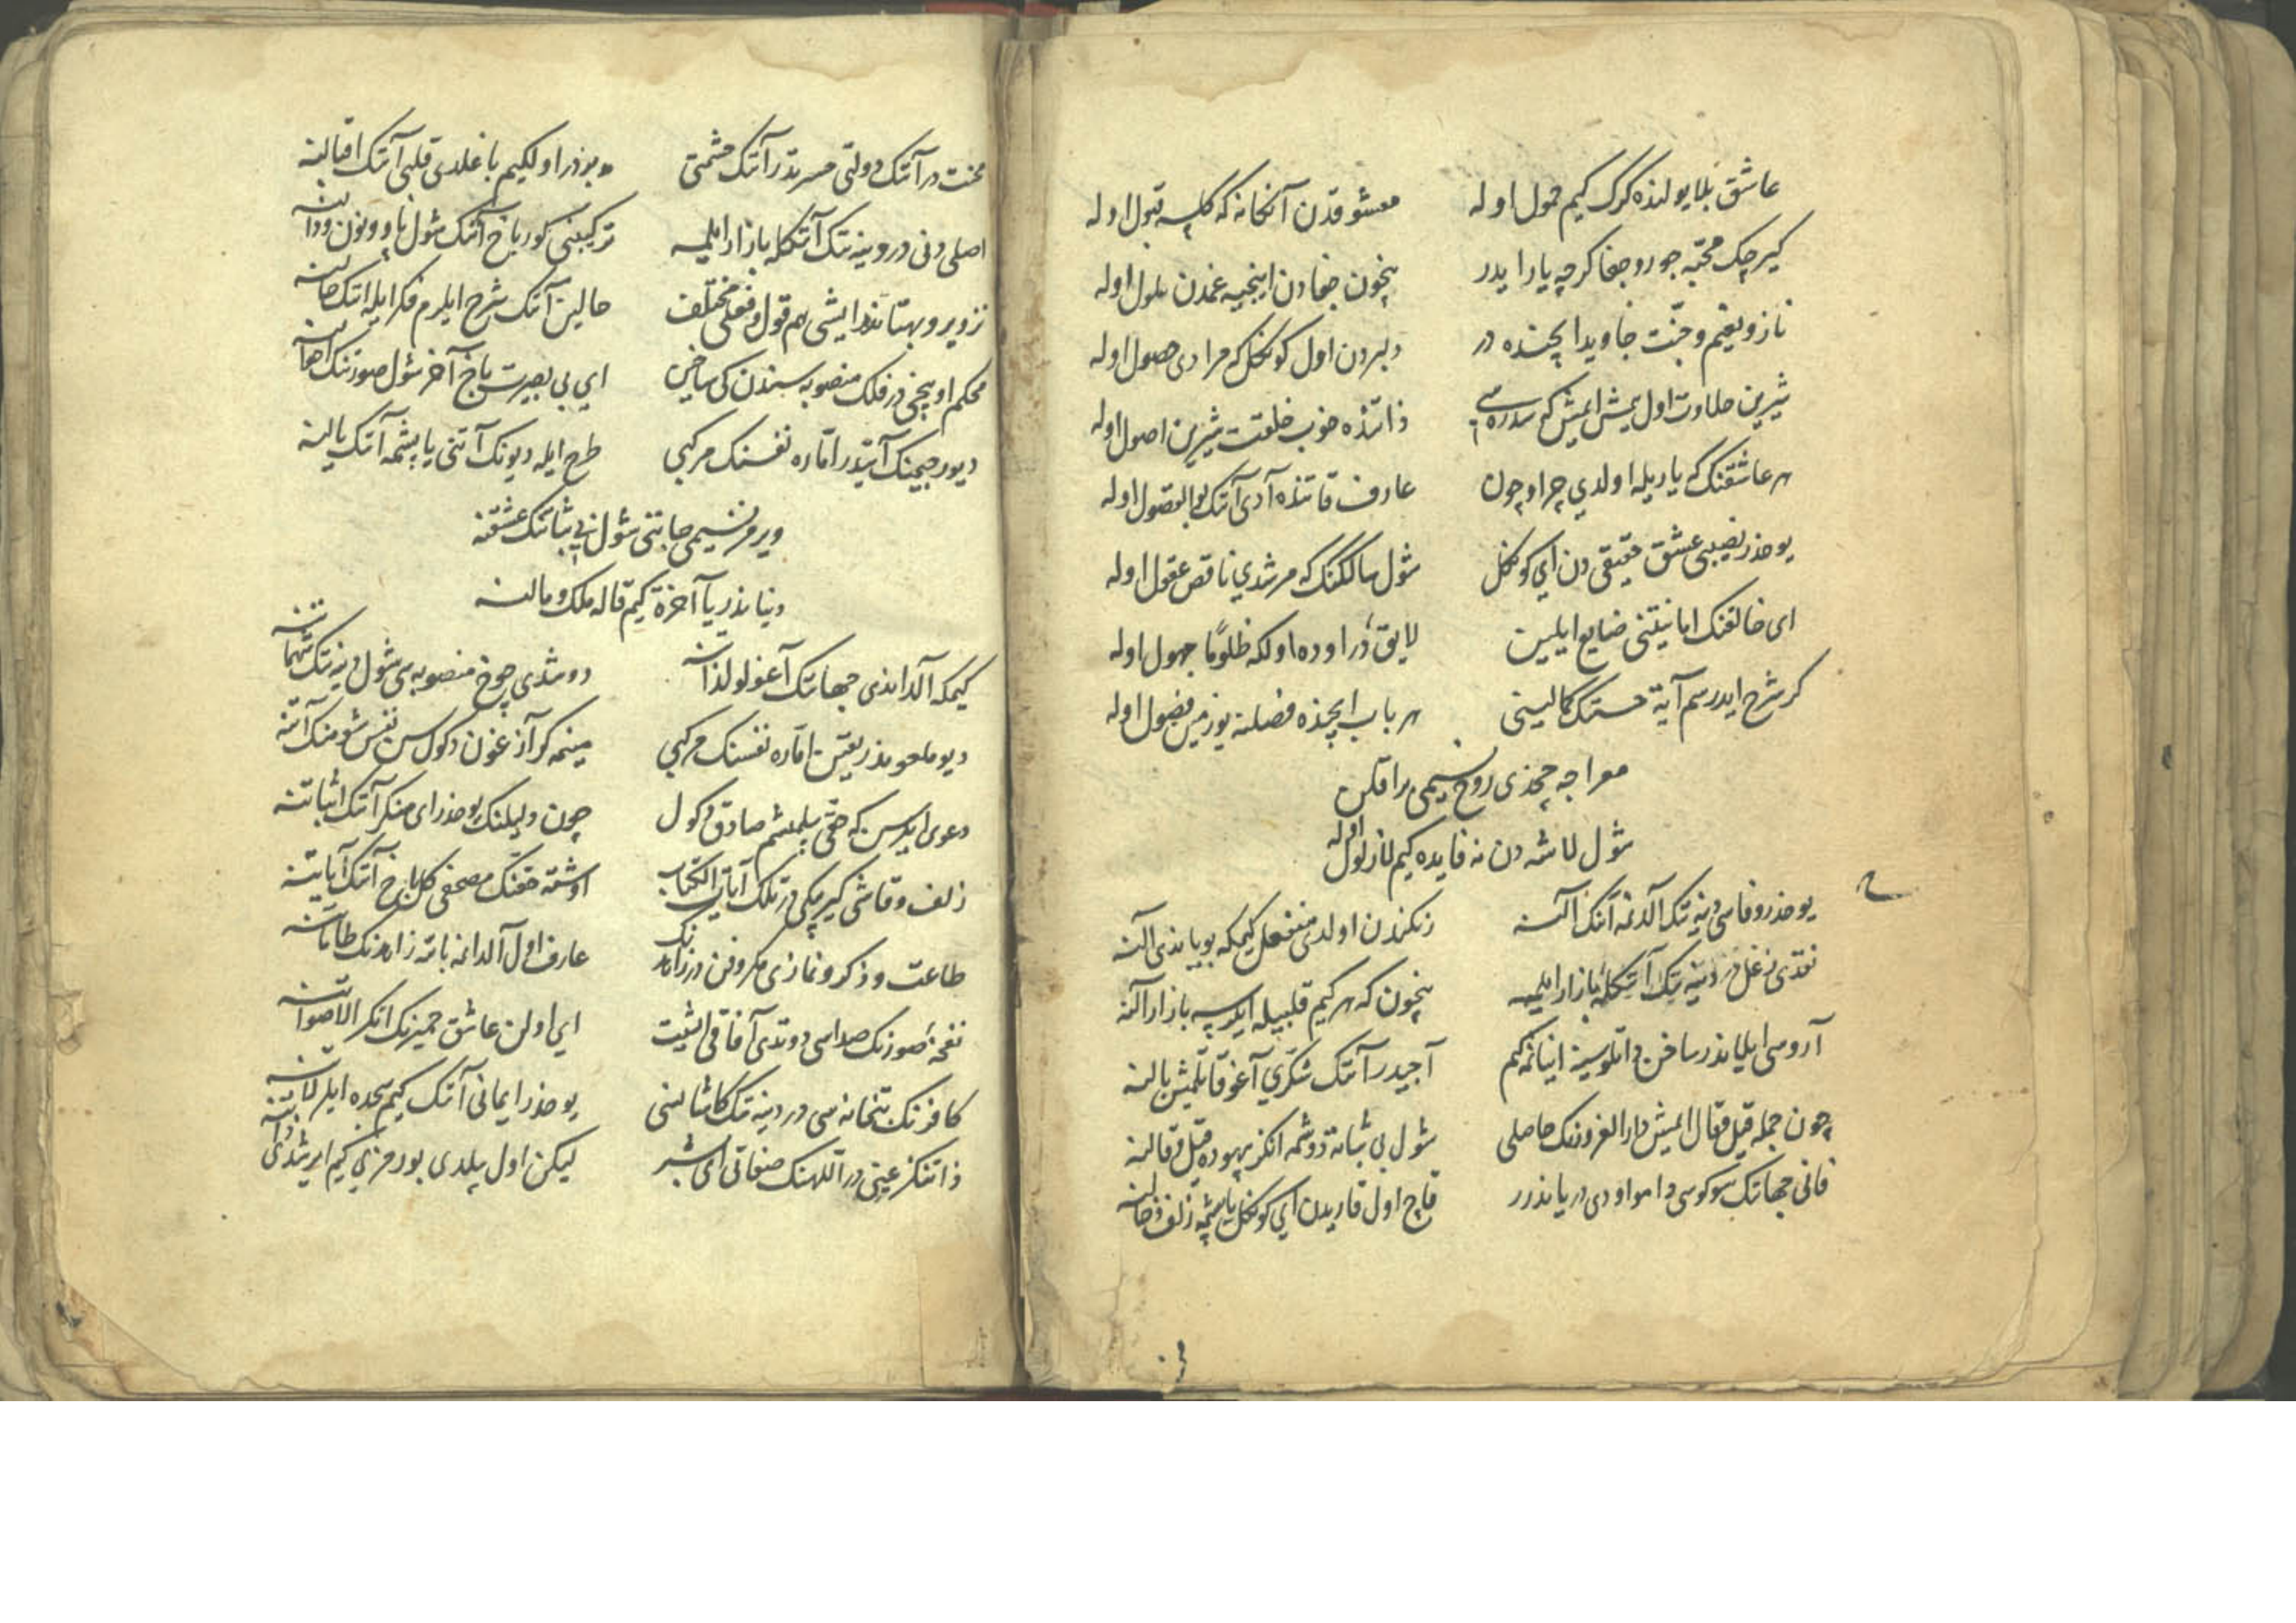 عاشق بلا یولنده کرک کیم حمول اوله معشوقدن آنکخانه که کلسه قبول اوله
کیرچک محبّه جور و جفا کرچه یار ایدر نیچون جفادن اینجیه غمدن ملول اوله
ناز و نعیم و جنّت جاوید ایچنده در دلبردن اول کوکل که مرادی حصول اوله
شیرین حلاوت اول یمش ایمش که سدره سی ذاتنده خوب خلقت شیرین اصول اوله
هر عاشقنک که یار یله اولدی چرا و چون عارف قاتنده آدی آنک بوالفضول اوله
یوخدر نصیبی عشق حقیقی دن ای کوکل شول سالکنک که مرشدی ناقص عقول اوله
ای خالقنک امانیتنی ضایع ایلین لایق در اوده اولکه ظلومًا جهول اوله
کر شرح ایدرسم آیة حسنک کمالینی هر باب ایچنده فضلنه یوز مین فضول اوله
معراجه چخدی روح نسیمی براقکن
شول لاشه دن نه فایده کیم لازلول اوله
یوخدر وفاسی دینه نک آلدنمه آنک آلنه رنکندن اولدی منفعل کیمکه بویاندی آلنه
نقدی دغل در دینه نک آنکله بازار ایلمه نیچون که هر کیم قلبیله ایلرسه بازار آلنه
آروسی ایلاندر ساخن داتلوسینه اینانمه کیم آجیدر آنک شکّری آغو قاتلمش بالنه
چون جمله قیل و قال ایمش دار الغرورنک حاصلی شول بی ثباته دوشمه انکز بیهوده قیل و قالنه
فانی جهانک سوکوسی دامو اودی در یاندرر قاچ اول قاریدن ای کوکل یاپشمه زلف و خالنه
محنت در آنک دولتی حسرتدر آنک حشمتی مدبردر اولکیم باغلدی قلبی آنک اقبالنه
اصلی دنی در دینه نک آنکله بازار ایلمه ترکیبنی کور باخ آنک شول یا و ونون و دالنه
تزویر و بهتاندر ایشی هم قول و فعلی مختلف حالین آنک شرح ایلرم فکر ایله آنک حالنه
محکم اوینچی در فلک منصوبه سندن کی ساخین ای بی بصیرت باخ آخر شول صورتنک
دیو رجیمنک آتیدر امّاره نفسنک مرکبی طرح ایله دیونک آتنی یاپشمه آنک یالنه
ویرمز نسیمی حاتنی شول بی ثباتنک عشقنه
دنیا ندر یا آخرة کیم قاله ملک و مالنه
کیمکه آلداندی جهانک آغولو لذاتنه دوشدی چوخ منصوبه سی شول دینه نک شهماتنه
دیو ملعوندر یقین امّاره نفسنک مرکبی مینمه کر آزغون دکول سن نفس شومنک آتنه
دعوی ایلرسن که حقی بیلمشم صادق دکول چون دلیلنک یوخدر ای منکر آنک اثباتنه
زلف و قاشی کیرپیکی در تلک آیات الکتاب اوشته حقنک مصحفی کل باخ آنک آیاتنه
طاعت و ذکر و نمازی مکر و فن در زاهدنک عارف اول آلدانمه باتمه زاهدنک طاماتنه
نفخهٔ صورنک صداسی دوتدی آفاقی اشیت ای اولن عاشق حمیرنک انکر الاصواتنه
کافرنک بتخانه سی در دینه نک کاشانه سی یوخدر ایمانی آنک کیم سجده ایلر لاتنه
ذاتنکز عینی در اللهنک صفاتی ای بشر لیکن اول بیلدی بو رمزی کیم ایرشدی ذاتنه